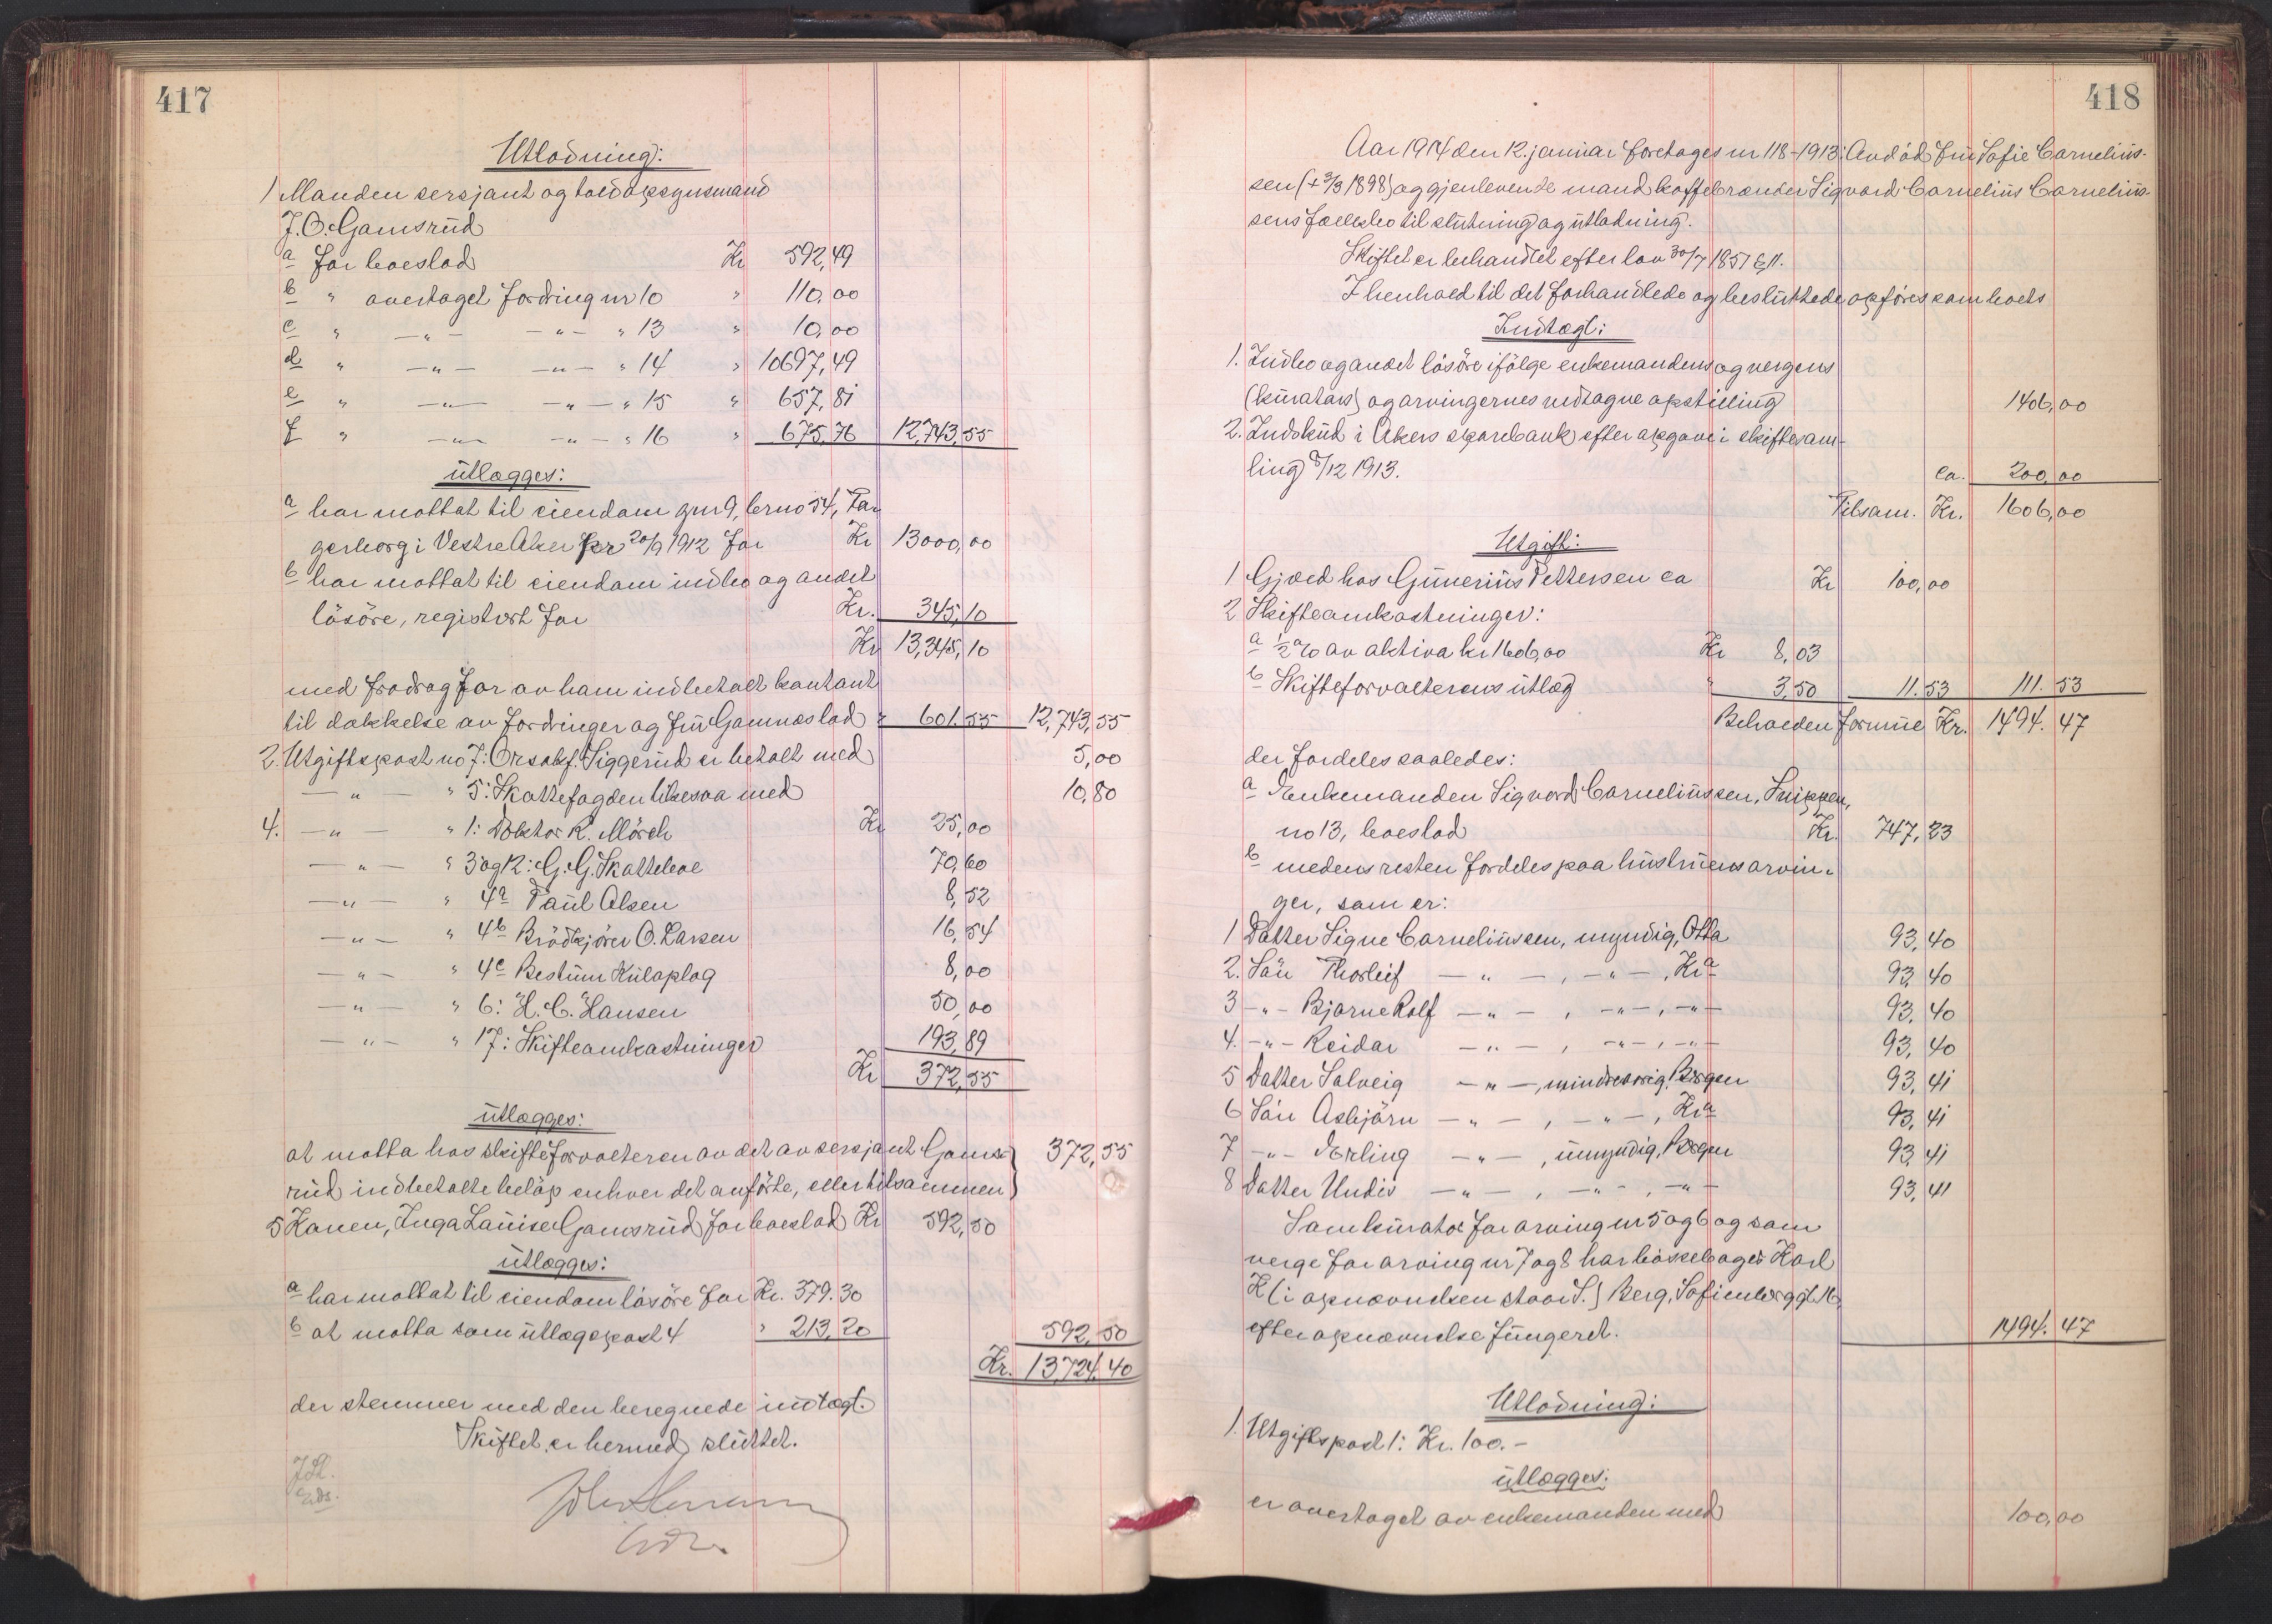 417
Utlodning:
1 Manden sersjant og toldopsynsmand
J. O. Gamsrud
a for boeslod Kr 592,49
b " overtaget fordring nr 10 " 110,00
c " —"— —"— " 13 " 10,00
d " —"— —"— " 14 " 10697,49
e " —"— —"— " 15 " 657,81
f " —"— —"— " 16 " 675,76 12,743,55
utlægges:
a har mottat til eiendom gnr 9, brno 54, Fa
gerborg i Vestre Aker pr 20/9 1912 for Kr 13000,00
b har mottat til eiendom indbo og andet
løsöre, registrert for Kr. 345,10
Kr 13,345,10
med fradrag for av ham indbetalt kontant
til dækkelse av fordringer og fru Gamnes lod " 601.55 12,743,55
2. Utgiftspost no 7: Orsakf. Siggerud er betalt med 5,00
—"— " 5: Skattefogden likesaa med 10,80
4. —"— " 1: Doktor R. Mörch Kr 25,00
—"— " 3 og 12: G. G. Skattebøe 70,60
—"— " 4a Paul Olsen 8,52
—"— " 4b Brödkjörer O. Larsen 16,54
—"— " 4c Bestum Kuloplag 8,00
—"— " 6: H. C. Hansen 50,00
—"— " 17: Skifteomkostninger 193,89
Kr 372,55
utlægges:
at motta hos skifteforvalteren av det av sersjant Gams- 372,55
rud indbetalte beløp enhver det anförte, eller tilsammen
5 Konen, Inga Louise Gamsrud for boeslod Kr 592,50
utlægges:
a har mottat til eiendom løsöre for Kr. 379.30
b at motta som utlægspost 4 " 213,20 592,50
Kr. 13,724,40
der stemmer med den beregnede indtægt.
Skiftet er hermed sluttet.
418
Aar 1914 den 12. januar foretages nr 118-1913: Avdöd fru Sofie Cornelius-
sen (+ 3/3 1898) og gjenlevende mand kaffebrænder Sigvard Cornelius Cornelius-
sens fællesbo til slutning og utlodning.
Skiftet er behandlet efter lov 30/7 1851 § 11.
I henhold til det forhandlede og besluttede opföres som boets
Indtægt:
1. Indbo og andet løsöre ifølge enkemandens og vergens
(kurators) og arvingernes vedtagne opstilling 1406,00
2. Indskud i Akers sparebank efter opgave i skiftesam-
ling 8/12 1913. ca. 200,00
Tilsam. Kr. 1606,00
Utgift:
1 Gjæld hos Gunerius Pettersen ca Kr 100,00
2 Skifteomkostninger:
a 1/2 % av aktiva kr 1606,00 Kr 8,03
b Skifteforvalterens utlæg " 3,50 11.53 111.53
Beholden formue Kr. 1494.47
der fordeles saaledes:
a Enkemanden Sigvard Corneliussen, Snippen,
no 13, boeslod Kr. 747,23
b medens resten fordeles paa hustruens arvin-
ger, som er:
1 Datter Signe Corneliussen, myndig, Otta 93,40
2. Sön Thorleif —"—, —"—, Kra 93,40
3 —"— Bjarne Rolf —"—, —"—, —"— 93,40
4. —"— Reidar —"—, —"—, —"— 93,40
5 Datter Solveig —"—, mindreaarig, Bergen 93,41
6 Sön Asbjörn —"—, —"—, Kra 93,41
7 —"— Erling —"—, umyndig, Bergen 93,41
8 Datter Undis —"—, —"—, —"— 93,41
Som kurator for arving nr 5 og 6 og som
verge for arving nr 7 og 8 har bøssemager Karl
K (i opnævnelsen staar S.) Berg, Sofienberggt. 16,
efter opnævnelse fungeret. 1494.47
Utlodning:
1. Utgiftspost 1: Kr. 100.-
utlægges:
er overtaget av enkemanden med 100,00